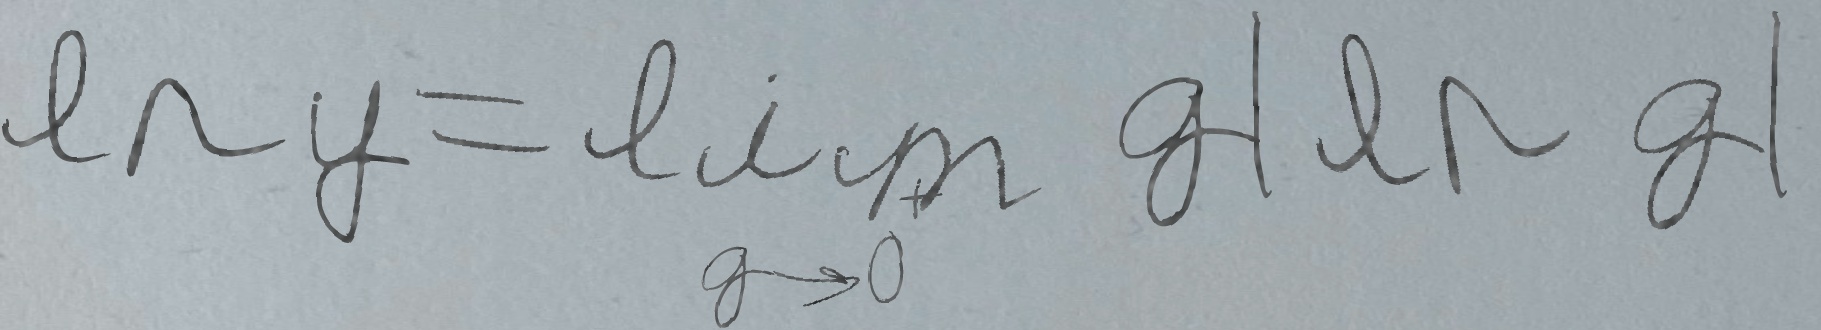 ln y = lim_{g→0^+} g|ln g|